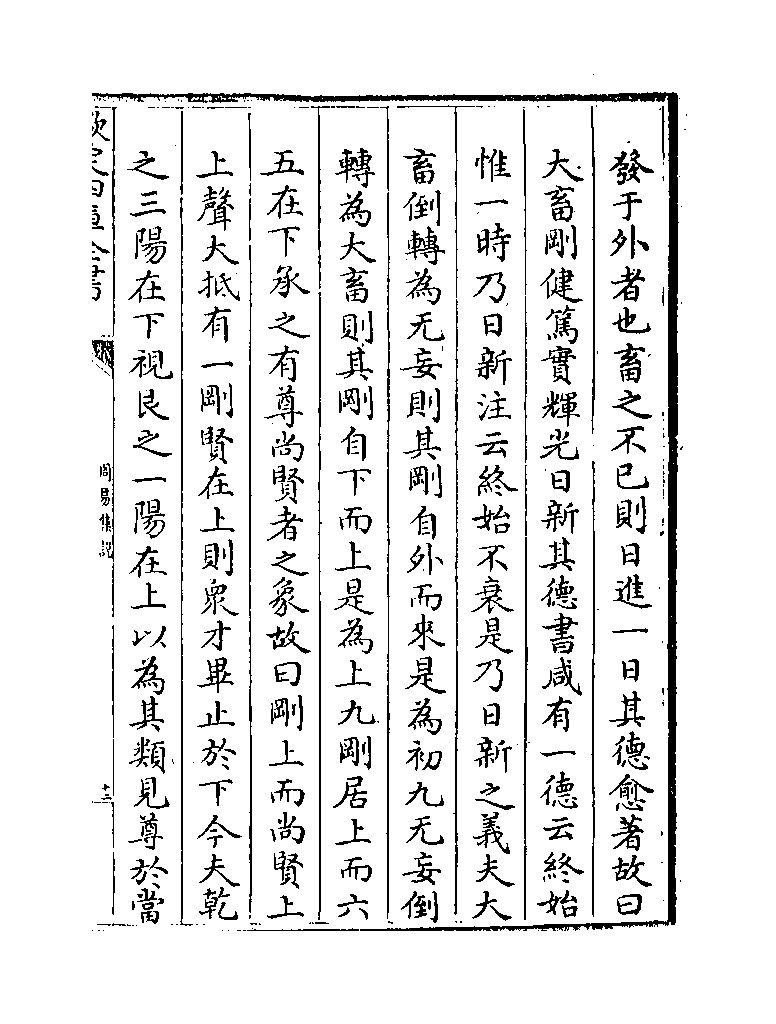 發于外者也畜之不已則日進一日其德愈著故曰
大畜剛健篤實輝光日新其德書咸有一德云終始
惟一時乃日新注云終始不衰是乃日新之義夫大
畜倒轉為无妄則其剛自外而來是為初九无妄倒
轉為大畜則其剛自下而上是為上九剛居上而六
五在下承之有尊尚賢者之象故曰剛上而尚賢上
上聲大抵有一剛賢在上則衆才畢止於下今夫乾
之三陽在下視艮之一陽在上以為其類見尊於當
欽定四庫全書
周易集説
十三